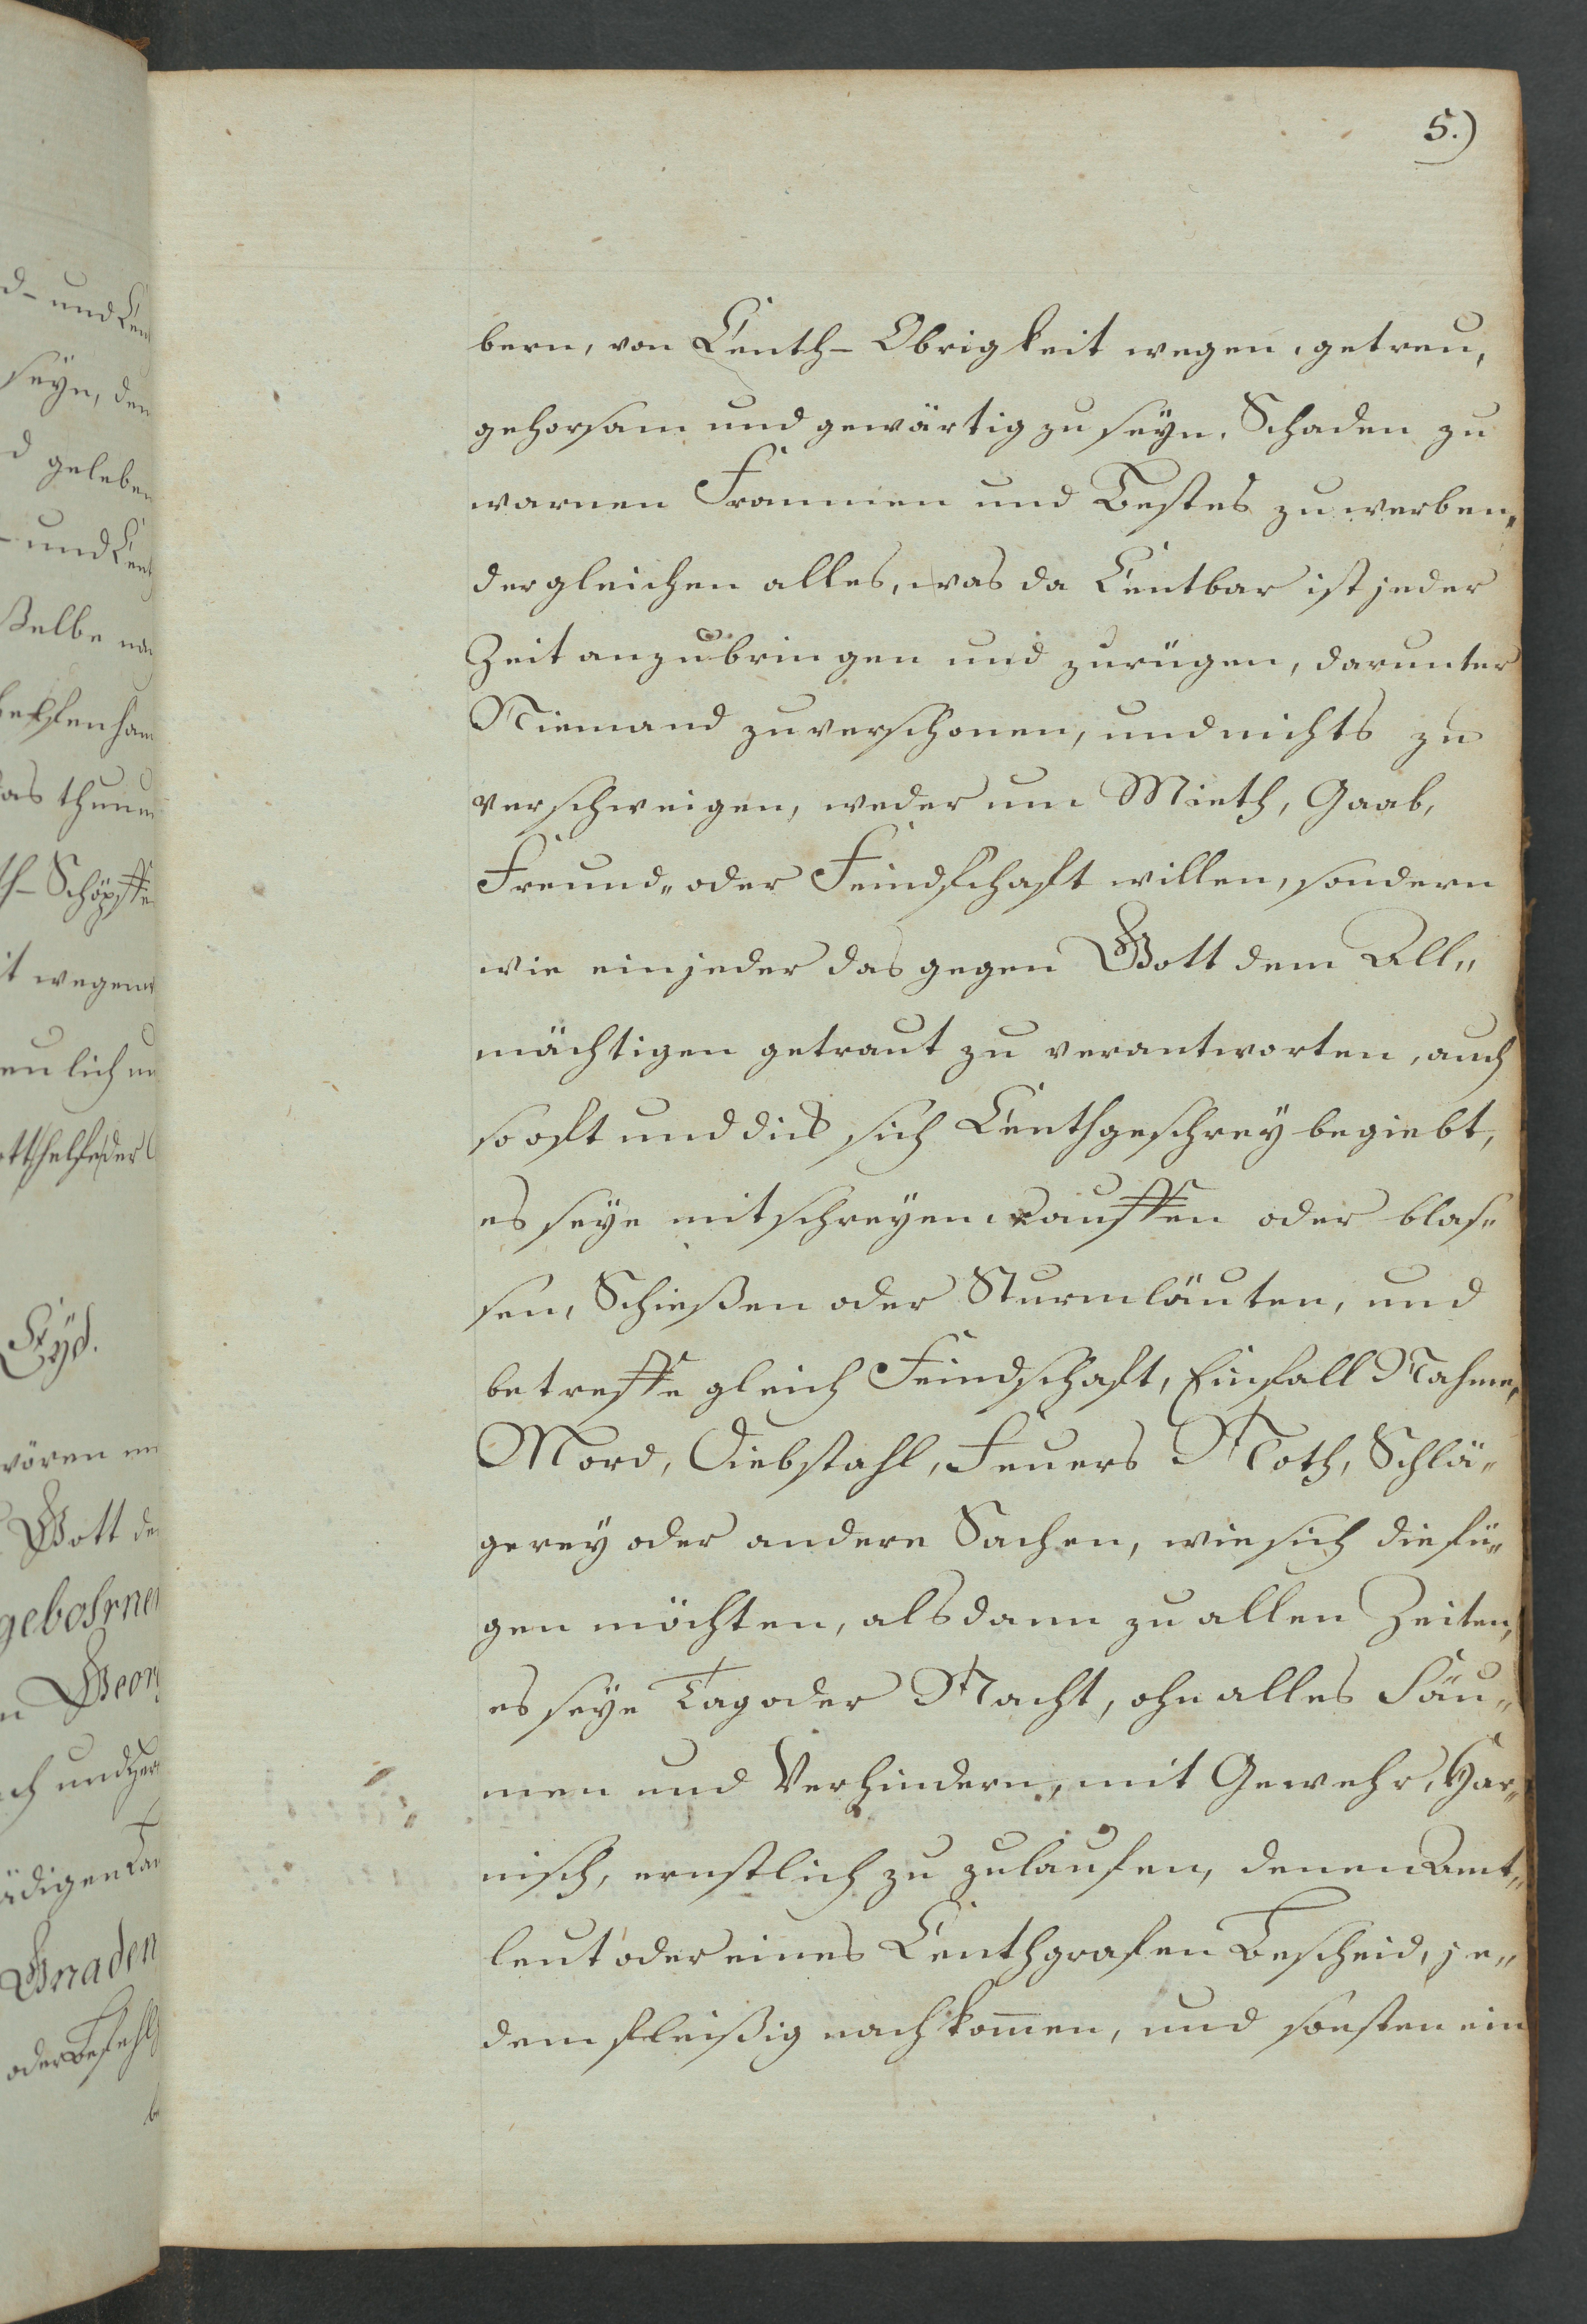 5.)
bern, von Centh- Obrigkeit wegen, getreu,
gehorsam und gewärtig zu seyn. Schaden zu
warnen Frommen und Bestes zu werben,
dergleichen alles, was da Centbar ist jeder
Zeit anzubringen und zurügen, darunter
Niemand zuverschonen, und nichts zu
verschweigen, weder um Mieth, Gaab,
Freund„ oder Feindschaft willen, sondern
wie ein jeder das gegen Gott dem All„
mächtigen getraut zu verantworten, auch
so oft und dies sich Centhgeschrey begiebt,
es seye mit schreyen rauffen oder blas„
sen, Schießen oder Sturmläuten, und
betreffe gleich Feindschaft, Einfall Nahme,
Mord, Diebstahl, Feuers Noth, Schlä„
gerey oder andere Sachen, wie sich die fü„
gen möchten, alsdann zu allen Zeiten,
es seye Tag oder Nacht, ohn alles Säu„
men und Verhindern, mit Gewehr, Har„
nisch, ernstlich zu zulaufen, denen Amt„
leut oder eines Centhgrafen Bescheid, je„
dem fleißig nachkom̄en, und sonsten ein
d- und Cen
seyn, den
d geleben
- und Cent
ßelbe
as thun
th- Schöpffe
it wegen
eu lich
Eyd.
wören
Gott de
gebohrne
n Georg
ch und
ädigen
Gnaden
oder Befehl
be